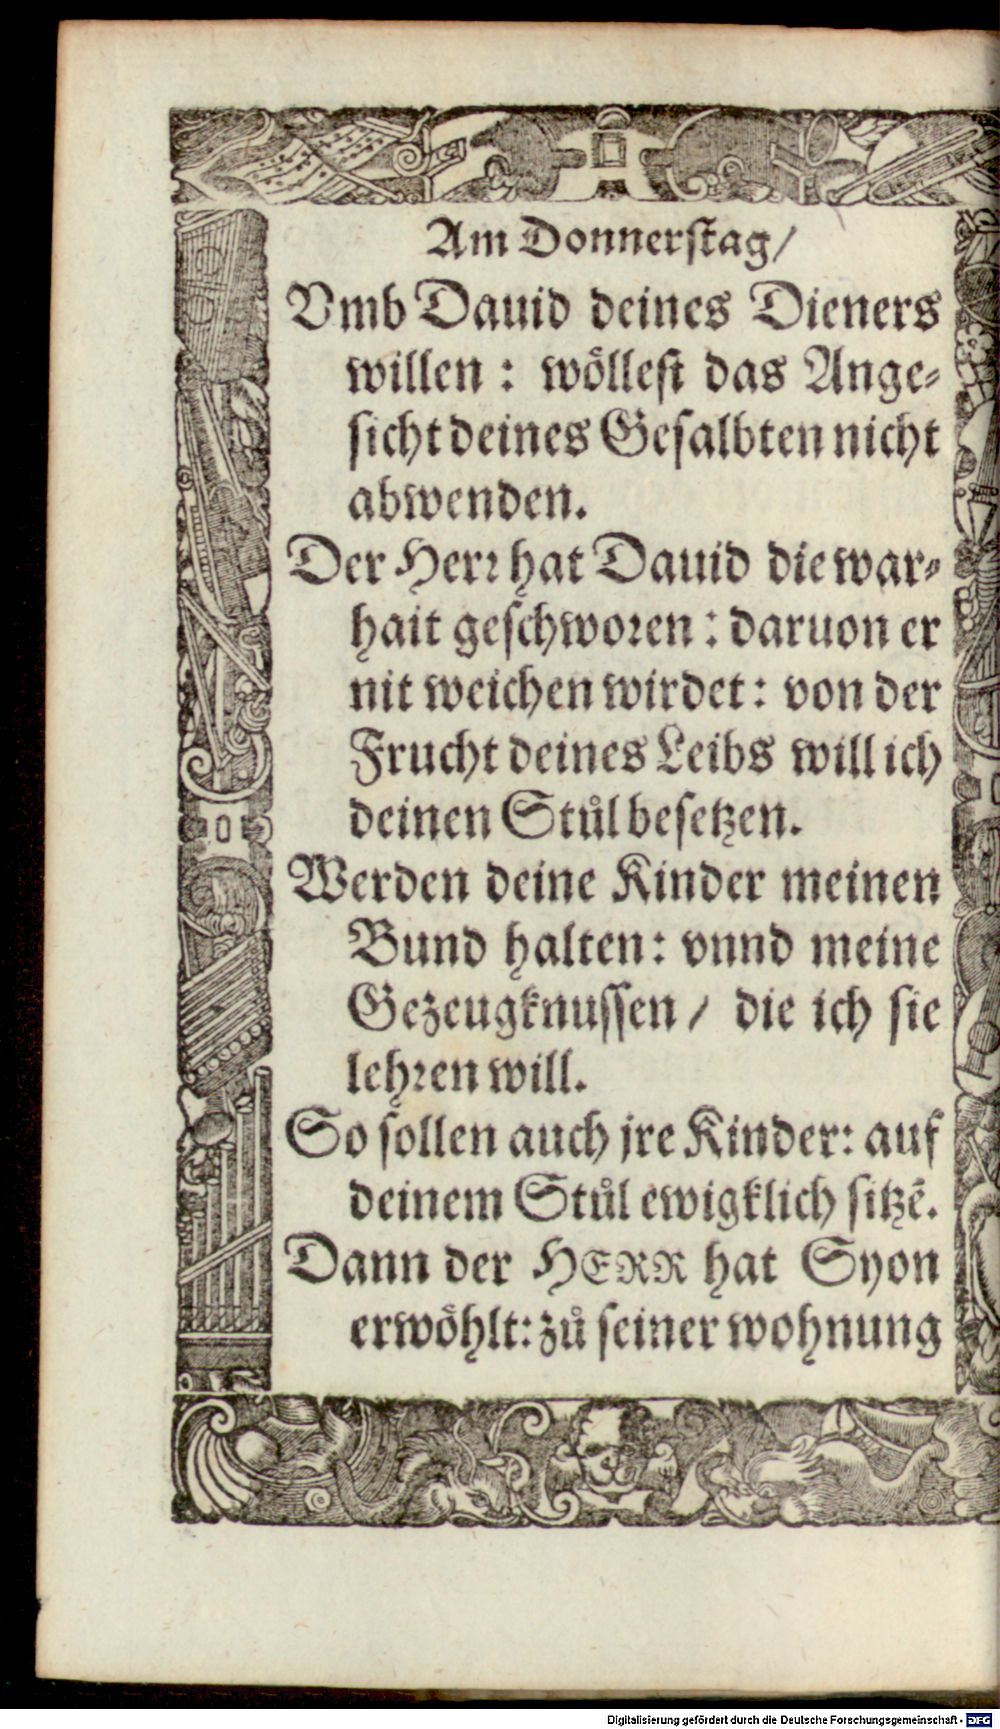 Am Donnerstag/
Vmb Dauid deines Dieners
willen : wöllest das Ange-
sicht deines Gesalbten nicht
abwenden.
Der Herr hat Dauid die war-
hait geschworen : daruon er
nit weichen wirdet: von der
Frucht deines Leibs will ich
deinen Stůl besetzen.
Werden deine Kinder meinen
Bund halten: vnnd meine
Gezeugknussen / die ich sie
lehren will.
So sollen auch jre Kinder: auf
deinem Stůl ewigklich sitzẽ.
Dann der HERR hat Syon
erwöhlt: zů seiner wohnung
Digitalisierung gefördert durch die Deutsche Forschungsgemeinschaft - DFG